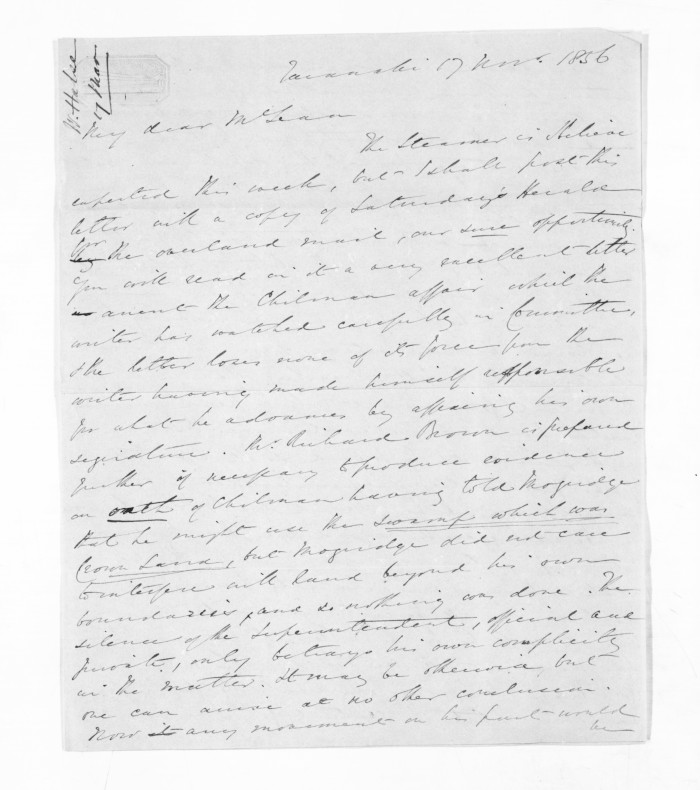 W. Halse
17 Nov.
Taranaki 17 Nov. 1856
My dear McLean
The Steamer is I believe
expected this week, but I shall post this
letter with a copy of Saturday's Herald
for the overland mail, our sure opportunity.
You will read in it a very excellent letter
anent the Chilman affair which the
writer has watched carefully in Committee,
& the letter loses none of its force from the
writer having made himself responsible
for what he advances by affixing his own
signature. Mr. Richard Brown is prepared
further if necessary to produce evidence
on oath of Chilman having told Mogridge
that he might use the swamp which was
Crown Land, but Mogridge did not care
to interfere with land beyond his own
boundaries, and so nothing was done. The
silence of the Superintendent, official and
private, only betrays his own complicity
in the matter. It may be otherwise but
one can arrive at no other conclusion.
Now any movement on his part would
be